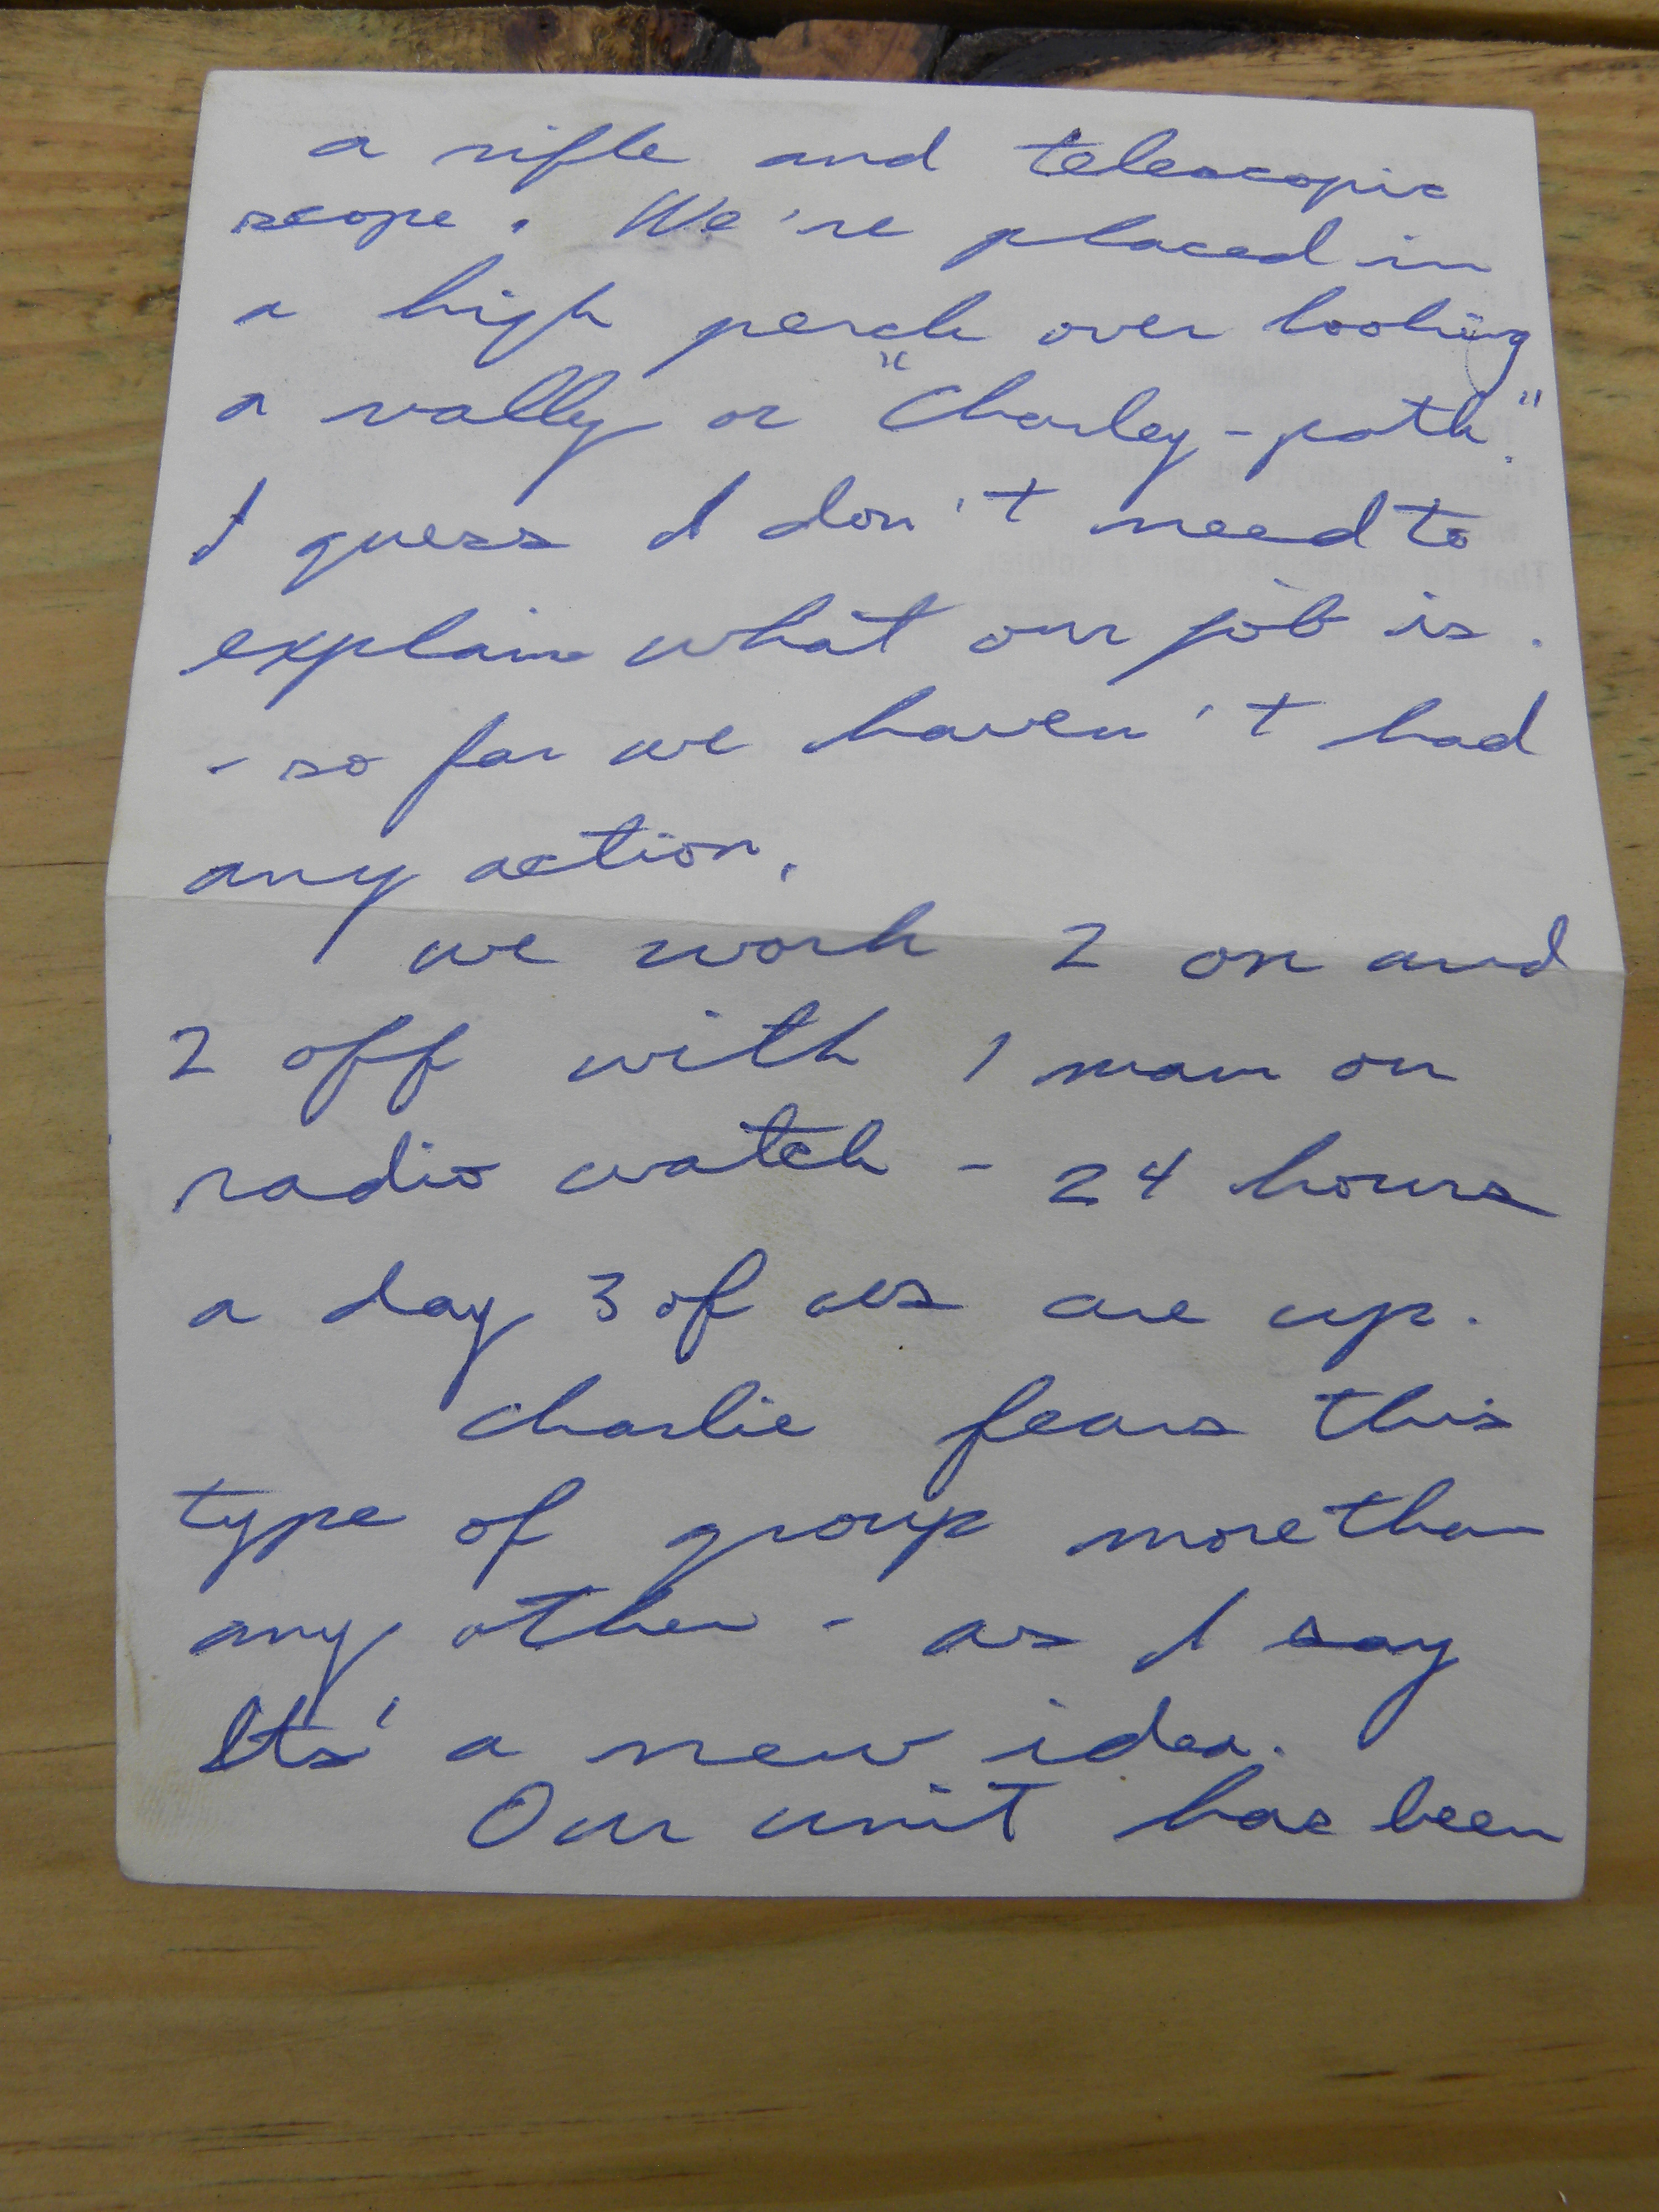 a rifle and telescopic
scope. We're placed in
a high perch over looking
a vally or "Charley-path".
I guess I don't need to
explain what our job is.
- so far we haven't had
any action.
we work 2 on and
2 off with 1 man on
radio watch - 24 hours
a day 3 of us are up.
Charlie fears this
type of group more than
any other - as I say
Its' a new idea.
Our unit has been